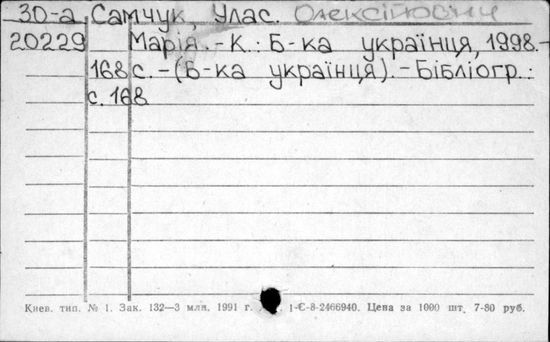 30-а Самчук, Улас. Олексійович
20229 Марія.-К.: Б-ка українця, 1998.-
168 с. - (Б-ка українця).-Бібліогр.:
с. 168
Киев. тип. № 1. Зак. 132—3 млн. 1991 г. 1-Є-8-2466940. Цена за 1000 шт. 7-80 руб.